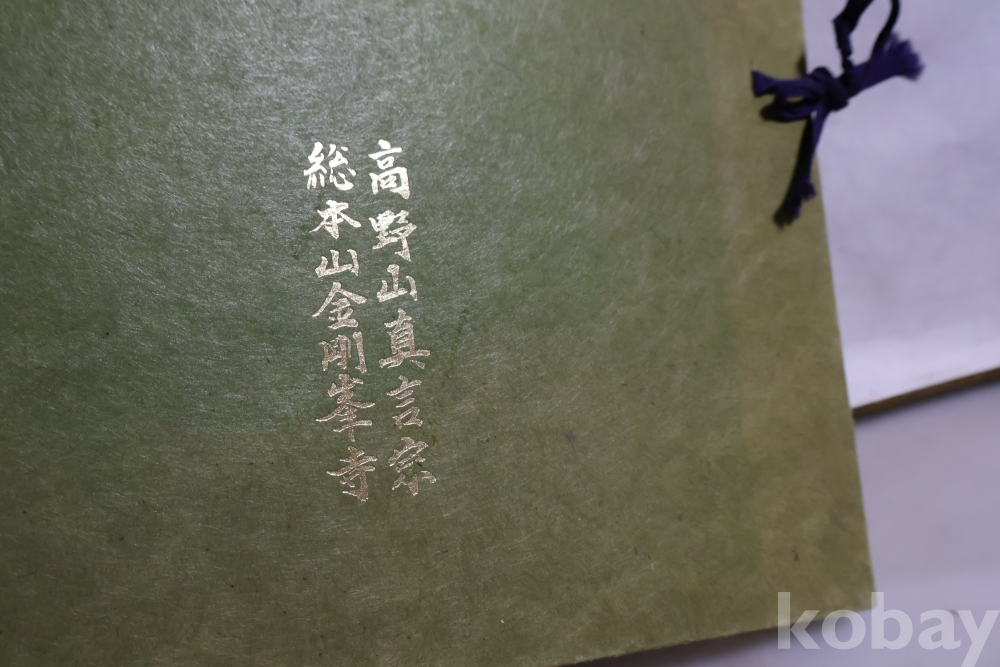 高野山真言宗
総本山金剛峯寺
kobay